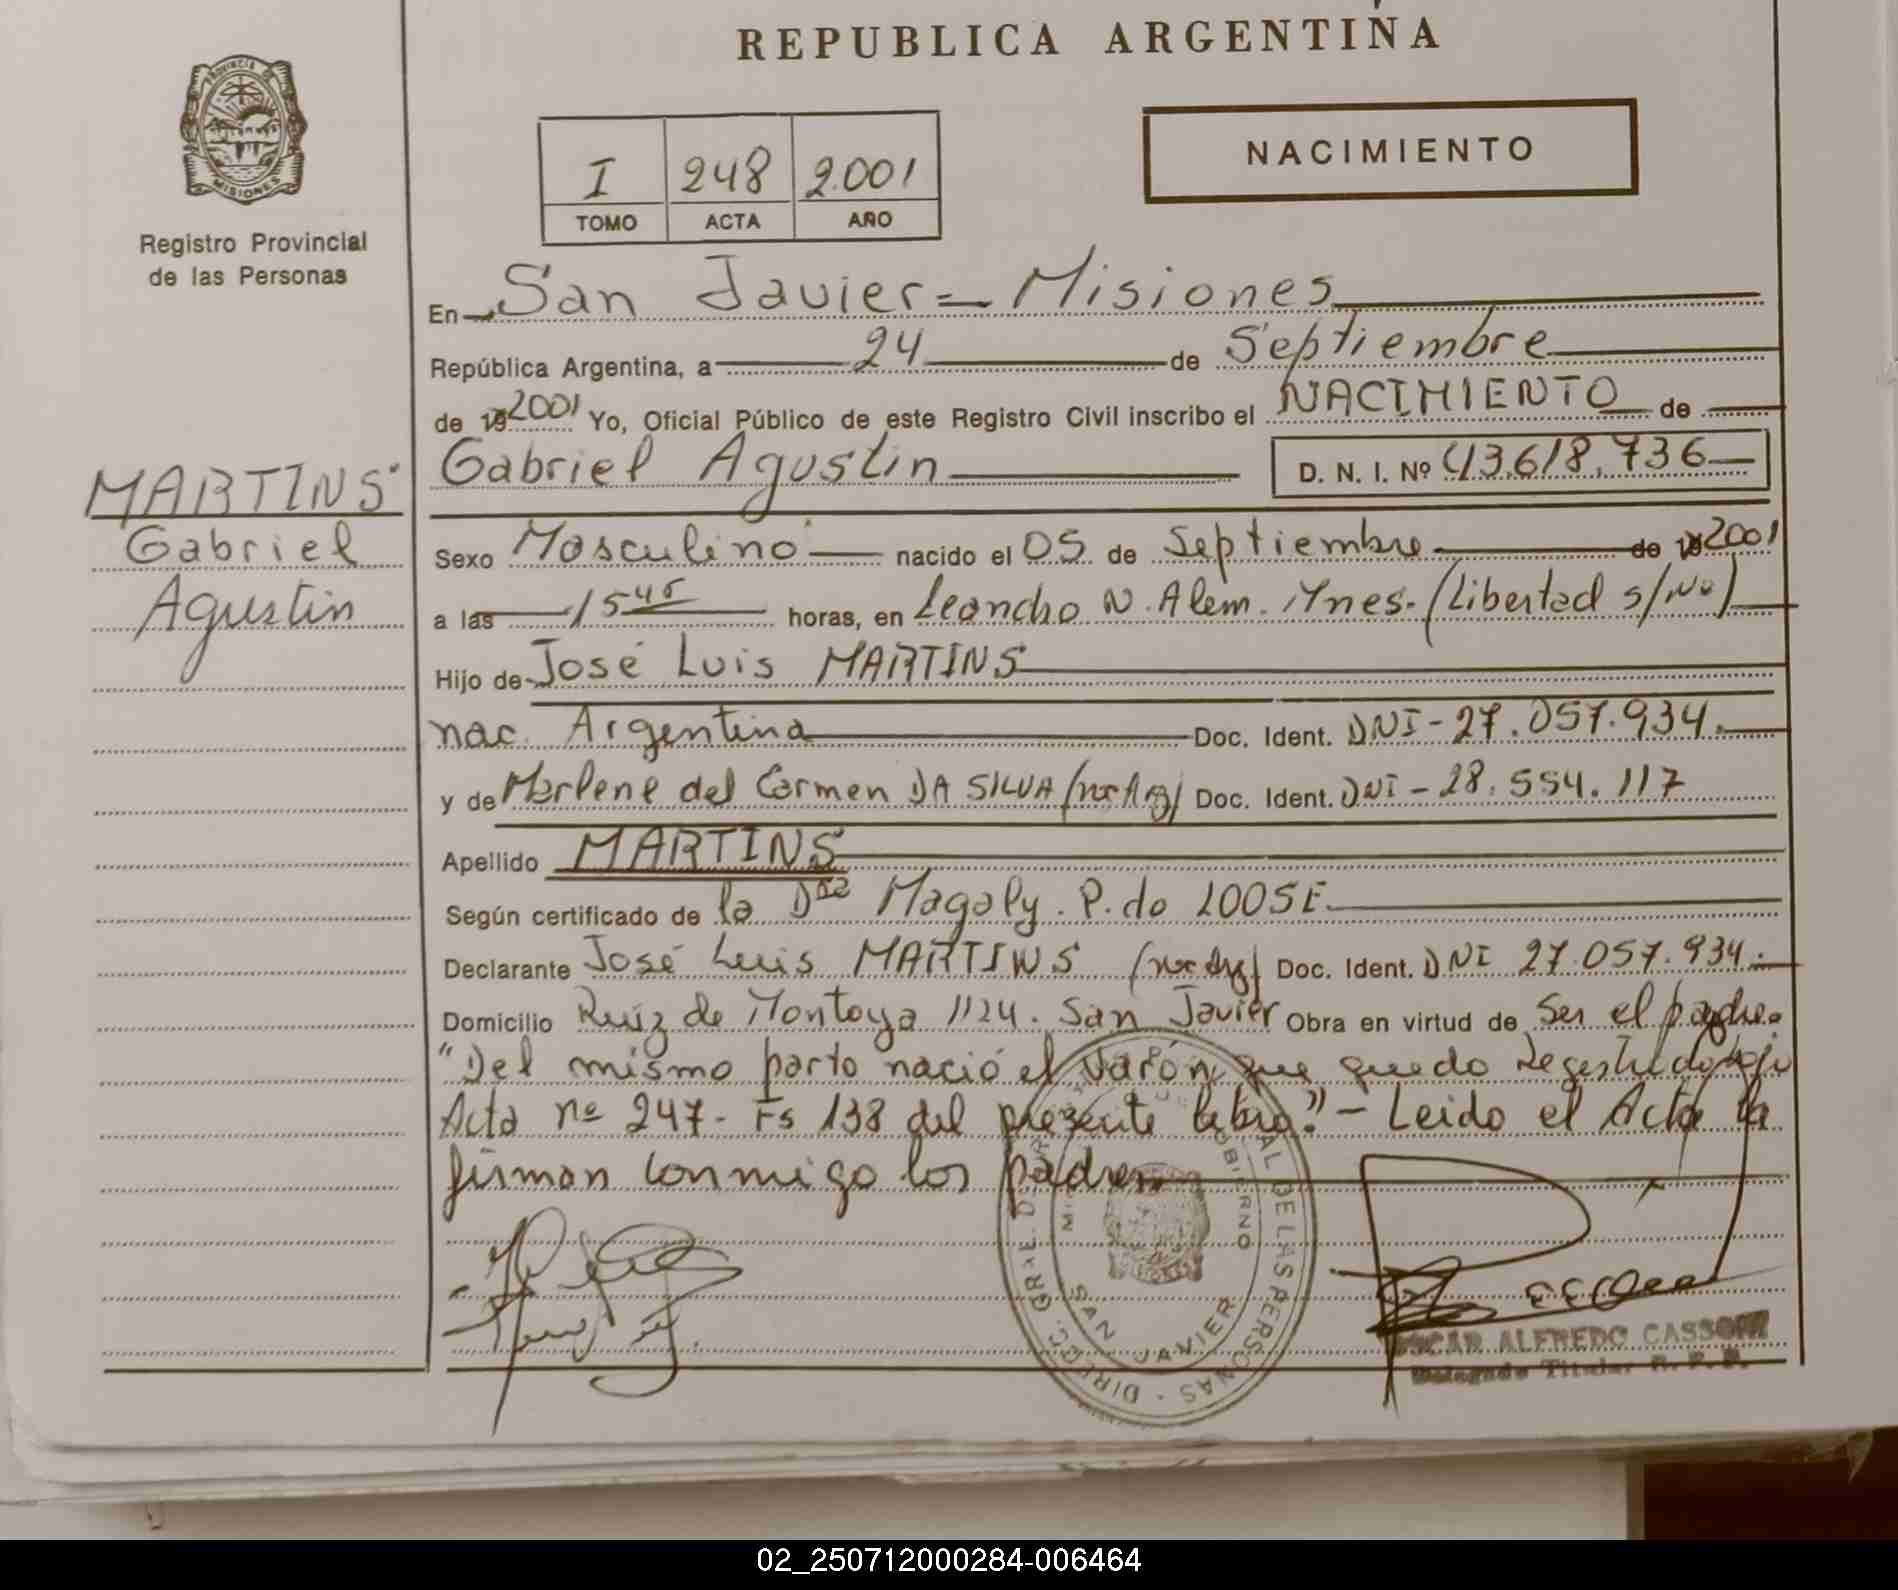 REPUBLICA ARGENTINA
PROVINCIA DE
MISIONES
Registro Provincial
de las Personas
I 248 2.001
TOMO ACTA AÑO
NACIMIENTO
En San Javier = Misiones
República Argentina, a 24 de Septiembre
de 19 2001 Yo, Oficial Público de este Registro Civil inscribo el NACIMIENTO de
Gabriel Agustin D. N. I. Nº 43.618.736
MARTINS
Gabriel
Agustin
Sexo Masculino nacido el 05 de Septiembre de 19 2001
a las 15 45 horas, en Leandro N. Alem. Mnes. (Libertad s/Nº)
Hijo de José Luis MARTINS
nac. Argentina Doc. Ident. DNI - 27.057.934.
y de Marlene del Carmen DA SILVA (nac Arg) Doc. Ident. DNI - 28.554.117
Apellido MARTINS
Según certificado de la Dra Magaly. P. do LOOSE
Declarante José Luis MARTINS (nac Arg) Doc. Ident. DNI 27.057.934.
Domicilio Ruiz de Montoya 1124. San Javier Obra en virtud de Ser el padre.
"Del mismo parto nació el varón que quedo registrado bajo
Acta nº 247 - Fs 138 del presente libro." - Leido el Acta la
firman conmigo los padres
DIRECC. GRAL. DE LAS PERSONAS
SAN JAVIER
OSCAR ALFREDO CASSONI
Delegado Titular R. P. P.
02_250712000284-006464